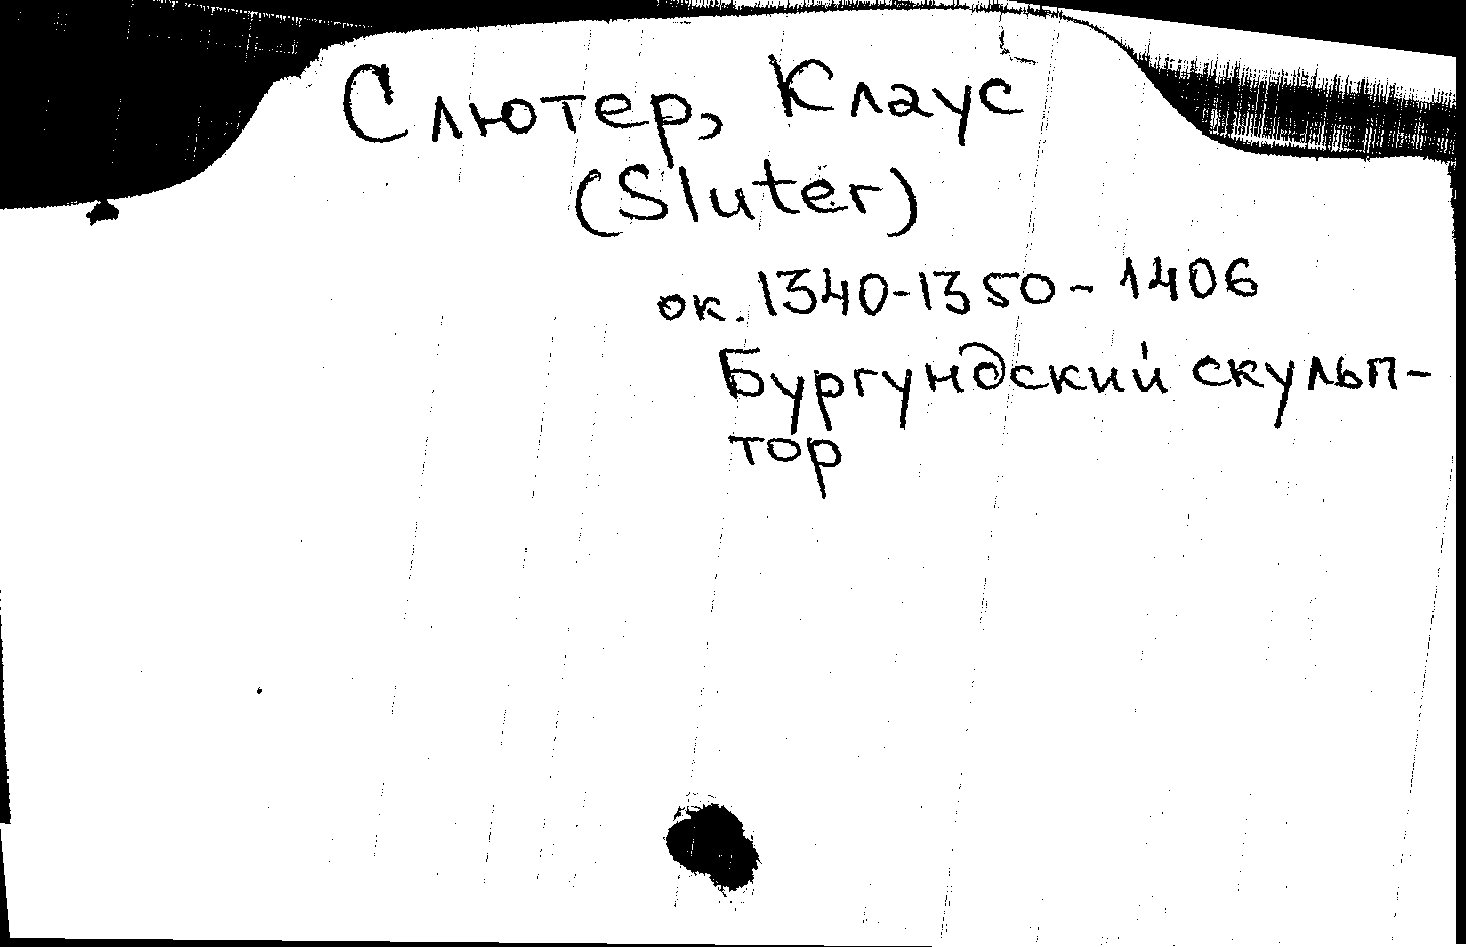 Слютер, Клаус
(Sluter)
ок. 1340-1350 - 1406
Бургундский скульп-
тор